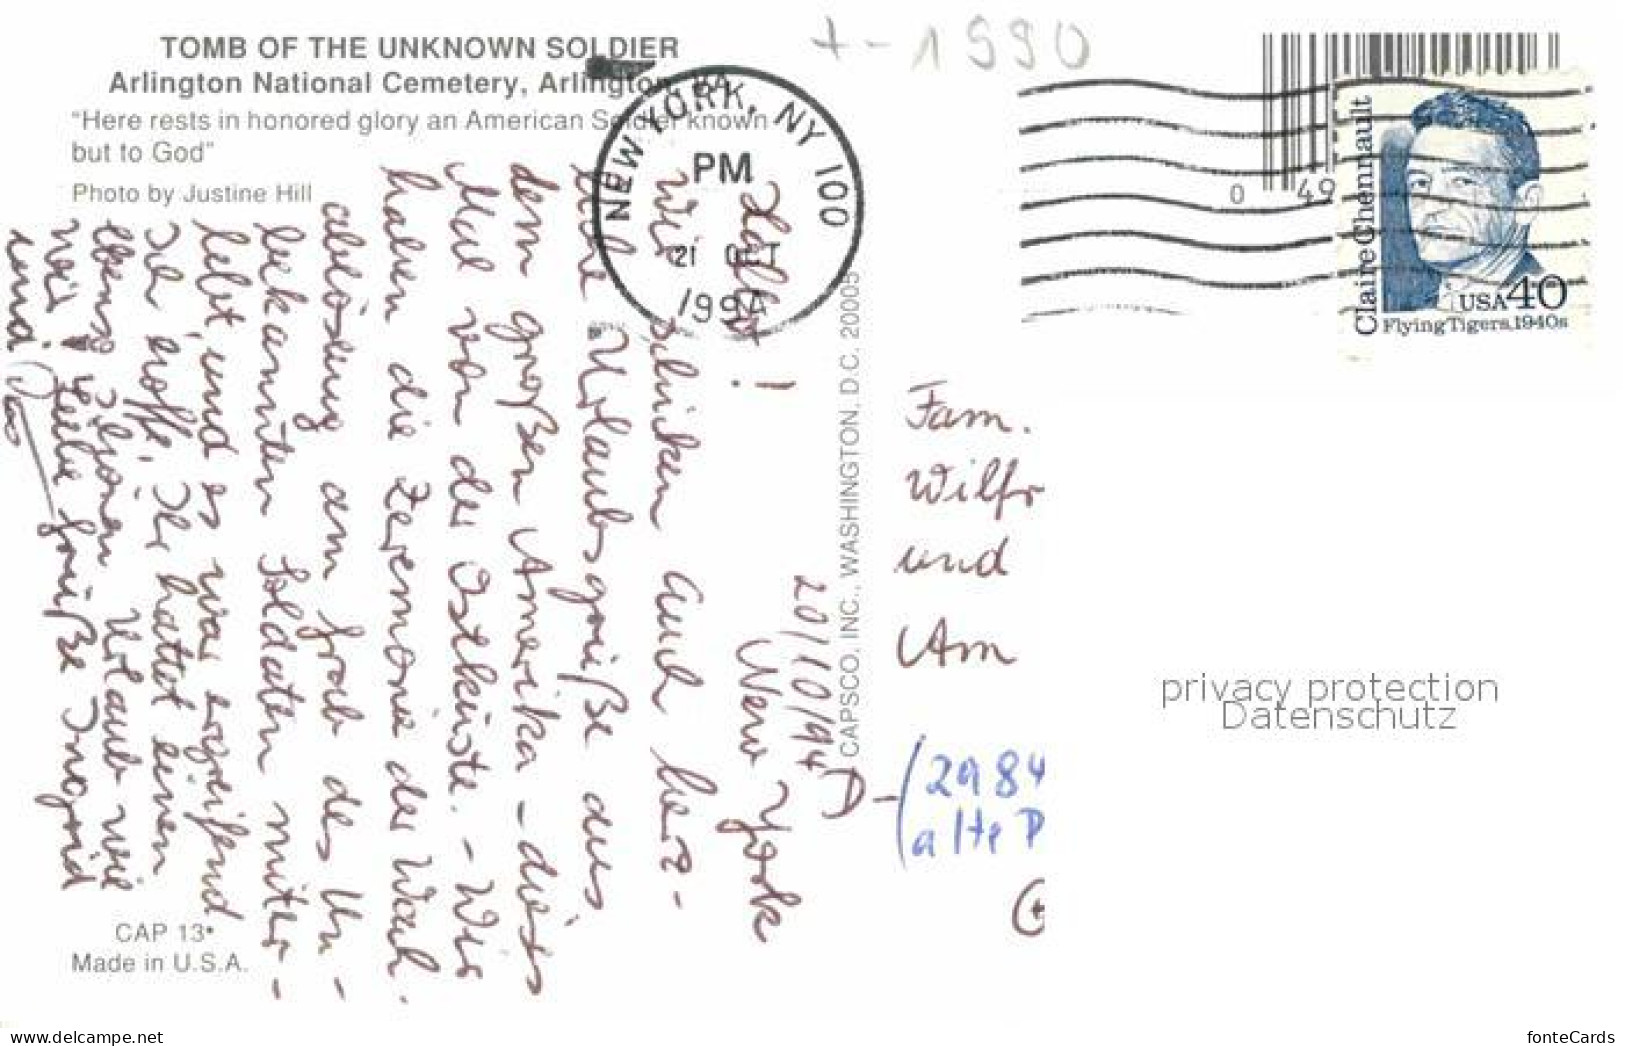 TOMB OF THE UNKNOWN SOLDIER
Arlington National Cemetery, Arlington, VA.
"Here rests in honored glory an American Soldier known
but to God"
Photo by Justine Hill
+-1990
NEW YORK, NY 100
PM
21 OCT
1994
0 49
Claire Chennault
USA 40
Flying Tigers, 1940s
20/10/94
New York
Hallo!
Wir schicken Euch herz-
liche Urlaubsgrüße aus
dem großen Amerika - dies
Mal von der Ostküste. - Wir
haben die Zeremonie der Wach-
ablösung am Grab des Un-
bekannten Soldaten miter-
lebt, und es war ergreifend
Ich hoffe, Ihr hattet einen
ebenso schönen Urlaub wie
wir! Liebe Grüße Ingrid
und
CAPSCO, INC., WASHINGTON, D.C. 20005
Fam.
Wilfr
und
Am
D-
(2984
alte P
CAP 13*
Made in U.S.A.
privacy protection
Datenschutz
www.delcampe.net
fonteCards